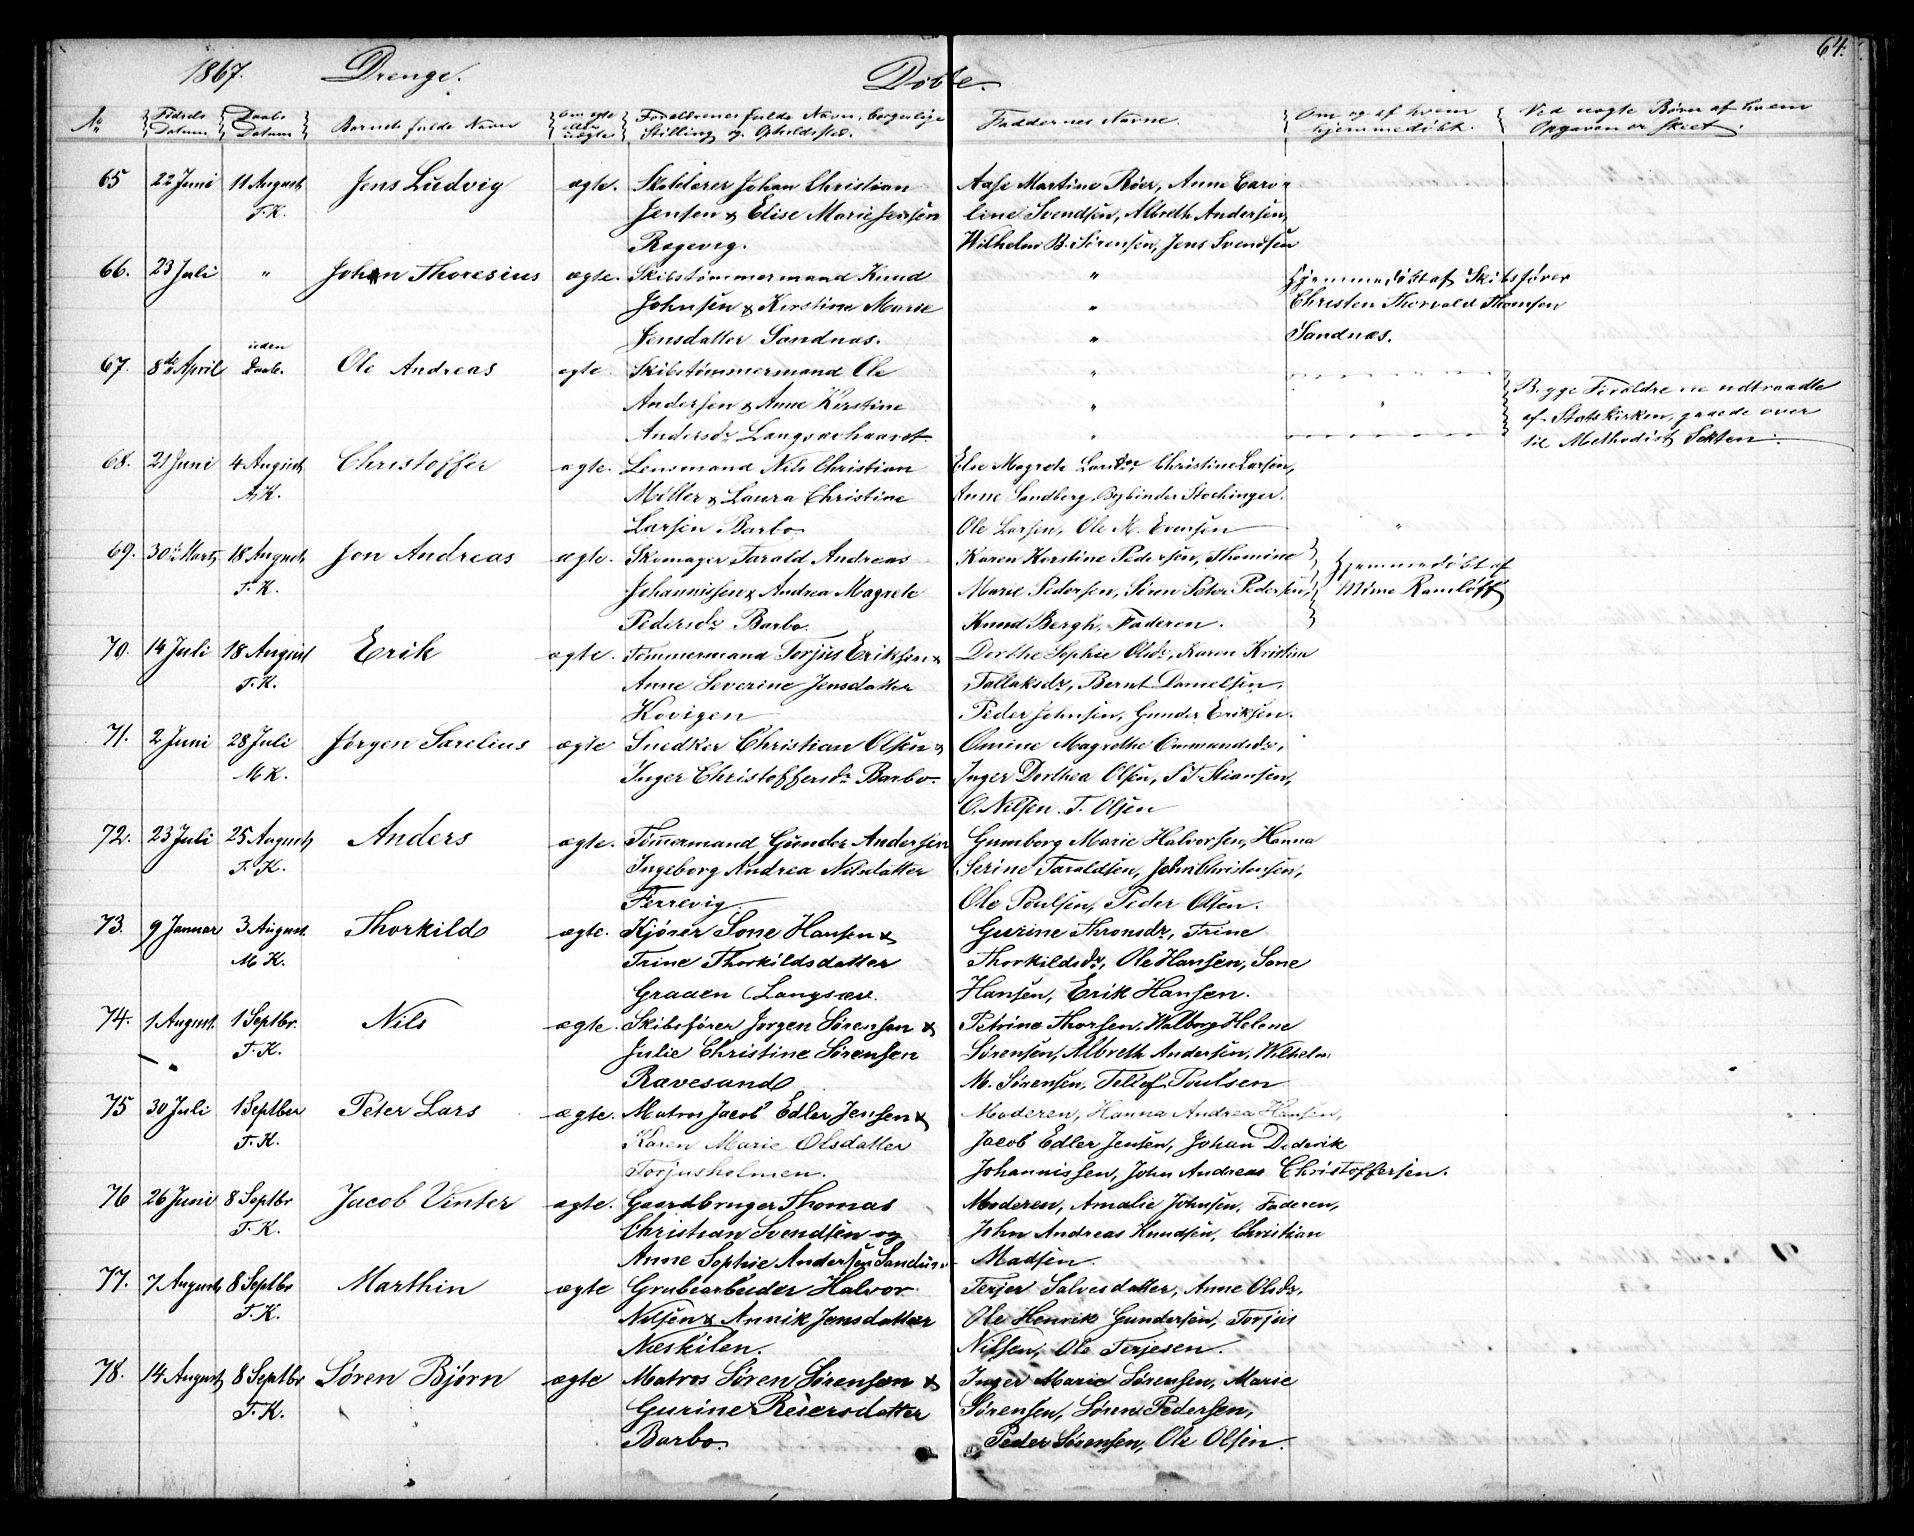 64.
1867. Drenge. Døbte.
No Fødsels Datum Daabs Datum Barnets fulde Navn Om ægte eller uægte Forældrenes fulde Navn, borgerlige Stilling og Opholdssted. Faddernes Navne. Om og af hvem hjemmedøbt. Ved uægte Børn af hvem Opgaven er skeet.
65 22 Juni 11 August Jens Ludvig ægte. Johan Christian Aase Martine Röer, Anne Caro-
T.K. Jensen & Elise Marie Jensen line Svendsen, Albreth Andersen,
Ragevig. Wilhelm B. Sörensen, Jens Svendsen
66. 23 Juli " Johan Thoresius ægte. Skibstømmermand Knud " Hjemmedøbt af Skibsfører
Johnsen & Kirstine Marie " Christen Thorvald Thomsen
Jensdatter Sandnæs. " Sandnæs.
67. 8de April uden Daab. Ole Andreas ægte. Skibstømmermand Ole " Begge Forældrene udtraadte
Andersen & Anne Kirstine " " af Statskirken, gaaede over
Andersdr " til Methodist Sekten.
68. 21 Juni 4 August Christoffer ægte. Lensmand Nils Christian Else Magrete Christine Larsen,
A.K. Møller & Laura Christine Anne Sandberg, Stochinger.
Larsen Barbo Ole Larsen, Ole M. Evensen "
69. 30 Marts 18 August Jon Andreas ægte. Skomager Tarald Andreas Karen Kerstine Pedersen, Thomine Hjemmedøbt af
T.K. Johannissen & Andrea Magrete Marie Pedersen, Sören Peter Pedersen, Mme Ramløff
Pedersdr Barbo. Knud Bergh, Faderen.
70. 14 Juli 18 August Erik ægte. Tømmermand Torjus Eriksen & Dorthe Sophie Olsdr, Karen Kristine
T.K. Anne Severine Jensdatter Tallaksdr, Bernt Danielsen,
Kovigen Peder Johnsen, Gunder Eriksen.
71. 2 Juni 28 Juli Jørgen Sarelius ægte Snedker Christian Olsen & Omine Magrethe Ommundsdr,
M.K. Inger Christoffersdr Barbo. Inger Dorthea Olsen, S T Stiansen,
O. Nilsen. T. Olsen
72. 23 Juli 25 August Anders ægte. Tømmermand Gunder Andersen Gumborg Marie Halvorsen, Hanna
T.K. Ingeborg Andrea Nilsdatter Serine Taraldsen, John Christensen,
Ferrevig Ole Poulsen, Peder Olsen.
73. 9 Januar 3 August. Thorkild ægte. Kjører Sone Hansen & Gurine Thronsdr, Trine
M K. Trine Thorkildsdatter Thorkildsdr, Ole Hansen, Sone
Graaen Langsæv. Hansen, Erik Hansen.
74. 1 August. 1 Septbr. Nils ægte. Skibsfører Jørgen Sörensen & Petrine Thorsen, Walborg Helene
T.K. Julie Christine Sörensen Sørensen, Albreth Andersen, Wilhelm
Rævesand M. Sørensen, Tellef Poulsen
75 30 Juli 1 Septber Peter Lars ægte. Matros Jacob Edler Jensen & Moderen, Hanna Andrea Hansen,
T.K. Karen Marie Olsdatter Jacob Edler Jensen, Johan Dederik
Torjusholmen. Johannissen, John Andreas Christoffersen.
76 26 Juni 8 Septbr Jacob Vinter ægte. Gaardbruger Thomas Moderen, Amalie Johnsen, Faderen,
T.K. Christian Svendsen og John Andreas Knudsen, Christian
Anne Sophie Andersen Madsen.
77. 7 August 8 Septbr Marthin ægte Grubearbeider Halvor Terjer Salvesdatter, Anne Olsdr,
T.K. Nilsen & Annik Jensdatter Ole Henrik Gundersen, Torjus
Næskilen. Nilssen, Ole Terjesen.
78. 14 August 8 Septbr Søren Bjørn ægte Matros Søren Sørensen & Inger Marie Sørensen, Marie
T.K. Gurine Reiersdatter Sørensen, Pedersen,
Barbo. Peder Sørensen, Ole Olsen.